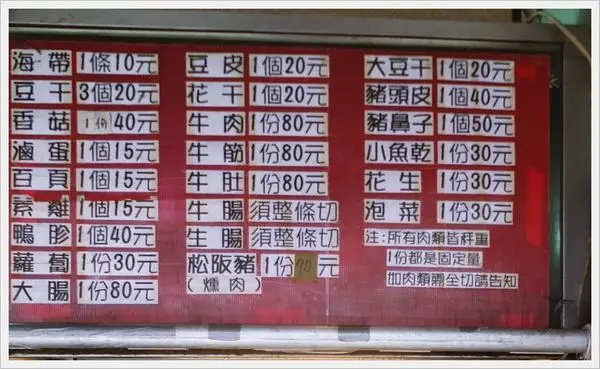 海帶 1條10元
豆干 3個20元
香菇 1份40元
滷蛋 1個15元
百頁 1個15元
素雞 1個15元
鴨胗 1個40元
蘿蔔 1份30元
大腸 1份80元
豆皮 1個20元
花干 1個20元
牛肉 1份80元
牛筋 1份80元
牛肚 1份80元
牛腸 須整條切
生腸 須整條切
松阪豬 1份90元
(燻肉)
大豆干 1個20元
豬頭皮 1個40元
豬鼻子 1個50元
小魚乾 1份30元
花生 1份30元
泡菜 1份30元
注:所有肉類皆秤重
1份都是固定量
如肉類需全切請告知